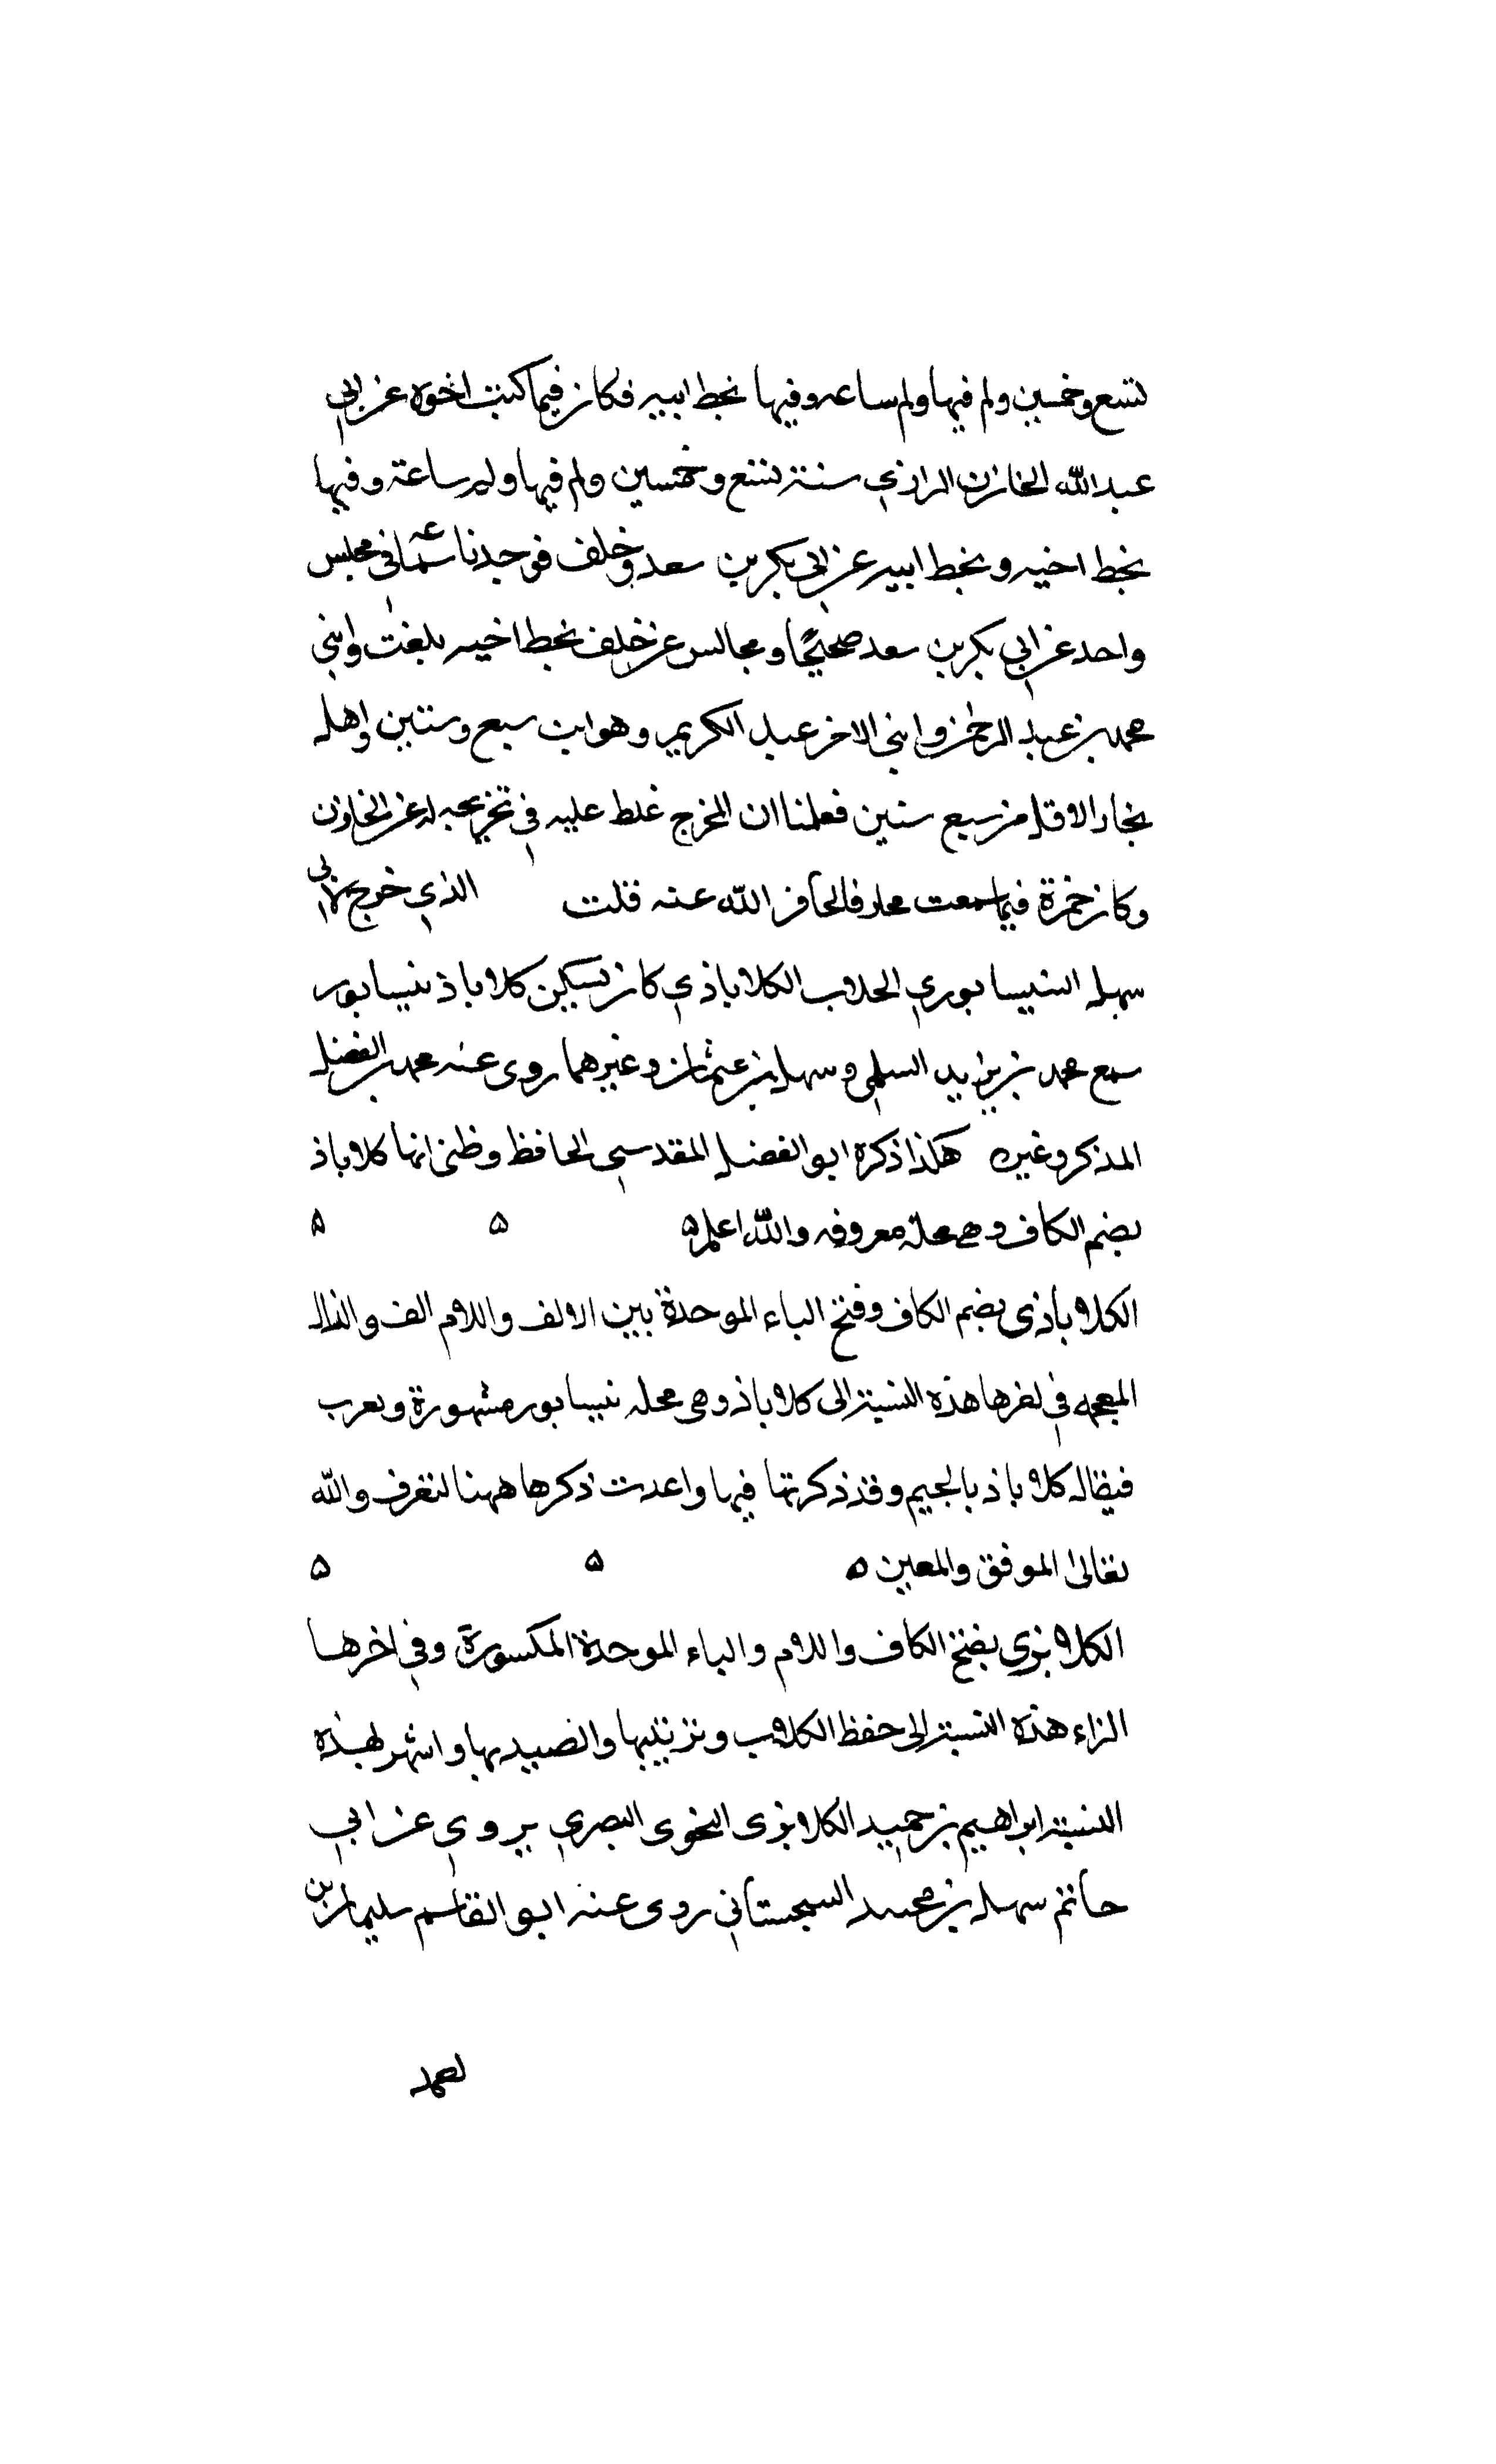 تسع وخمسين ولم فيها ولم ساعه وفيها بخط ابيه فكان فيما كتب اخوه عن ابي
عبد الله الخازن الرازي سنة تسع وخمسين ولم فيها وله ساعة وفيها
بخط اخيه وبخط ابيه عن ابي بكر بن سعد وخلف فوجدنا سماعه في مجلس
واحد عن ابي بكر بن سعد صحيحًا ومجالس عن خلف بخط اخيه بلغت وابني
محمد بن عبد الرحمن وابني الاخر عبد الكريم وهو ابن سبع وستين واهل
بخارا لاقل من سبع سنين فعلمنا ان المخرج غلط عليه في تخريجه له عن الخازن
وكان حمزة فيما سمعت مجازفا لجافز الله عنه قلت الذي خرج لابي
سهل النيسابوري الجلاب الكلاباذي كان يسكن كلاباذ نيسابور
سمع محمد بن يزيد السلمي وسهل بن عثمان وغيرهما روى عنه محمد بن الفضل
المذكر وغيره هكذا ذكره ابو الفضل المقدسي الحافظ وظني انها كلاباذ
بضم الكاف وهي محلة معروفه والله اعلم ۵ ۵ ۵
الكلاباذى بضم الكاف وفتح الباء الموحدة بين الالف واللام الف والذال
المعجمه في اخرها هذه النسبة الى كلاباذ وهي محله نيسابور مشهورة ويعرب
فيقال كلاباذ بالجيم وقد ذكرتها فيها واعدت ذكرها ههنا لتعرف والله
تعالى الموفق والمعين ۵ ۵ ۵
الكلابزي بفتح الكاف واللام والباء الموحدة المكسورة وفي اخرها
الزاء هذه النسبة الى حفظ الكلاب وتربيتها والصيد بها واشهر لهذه
النسبة ابراهيم بن حميد الكلابزى النحوى البصري يروي عن ابي
حاتم سهل بن محمد السجستاني روى عنه ابو القاسم سليمان بن